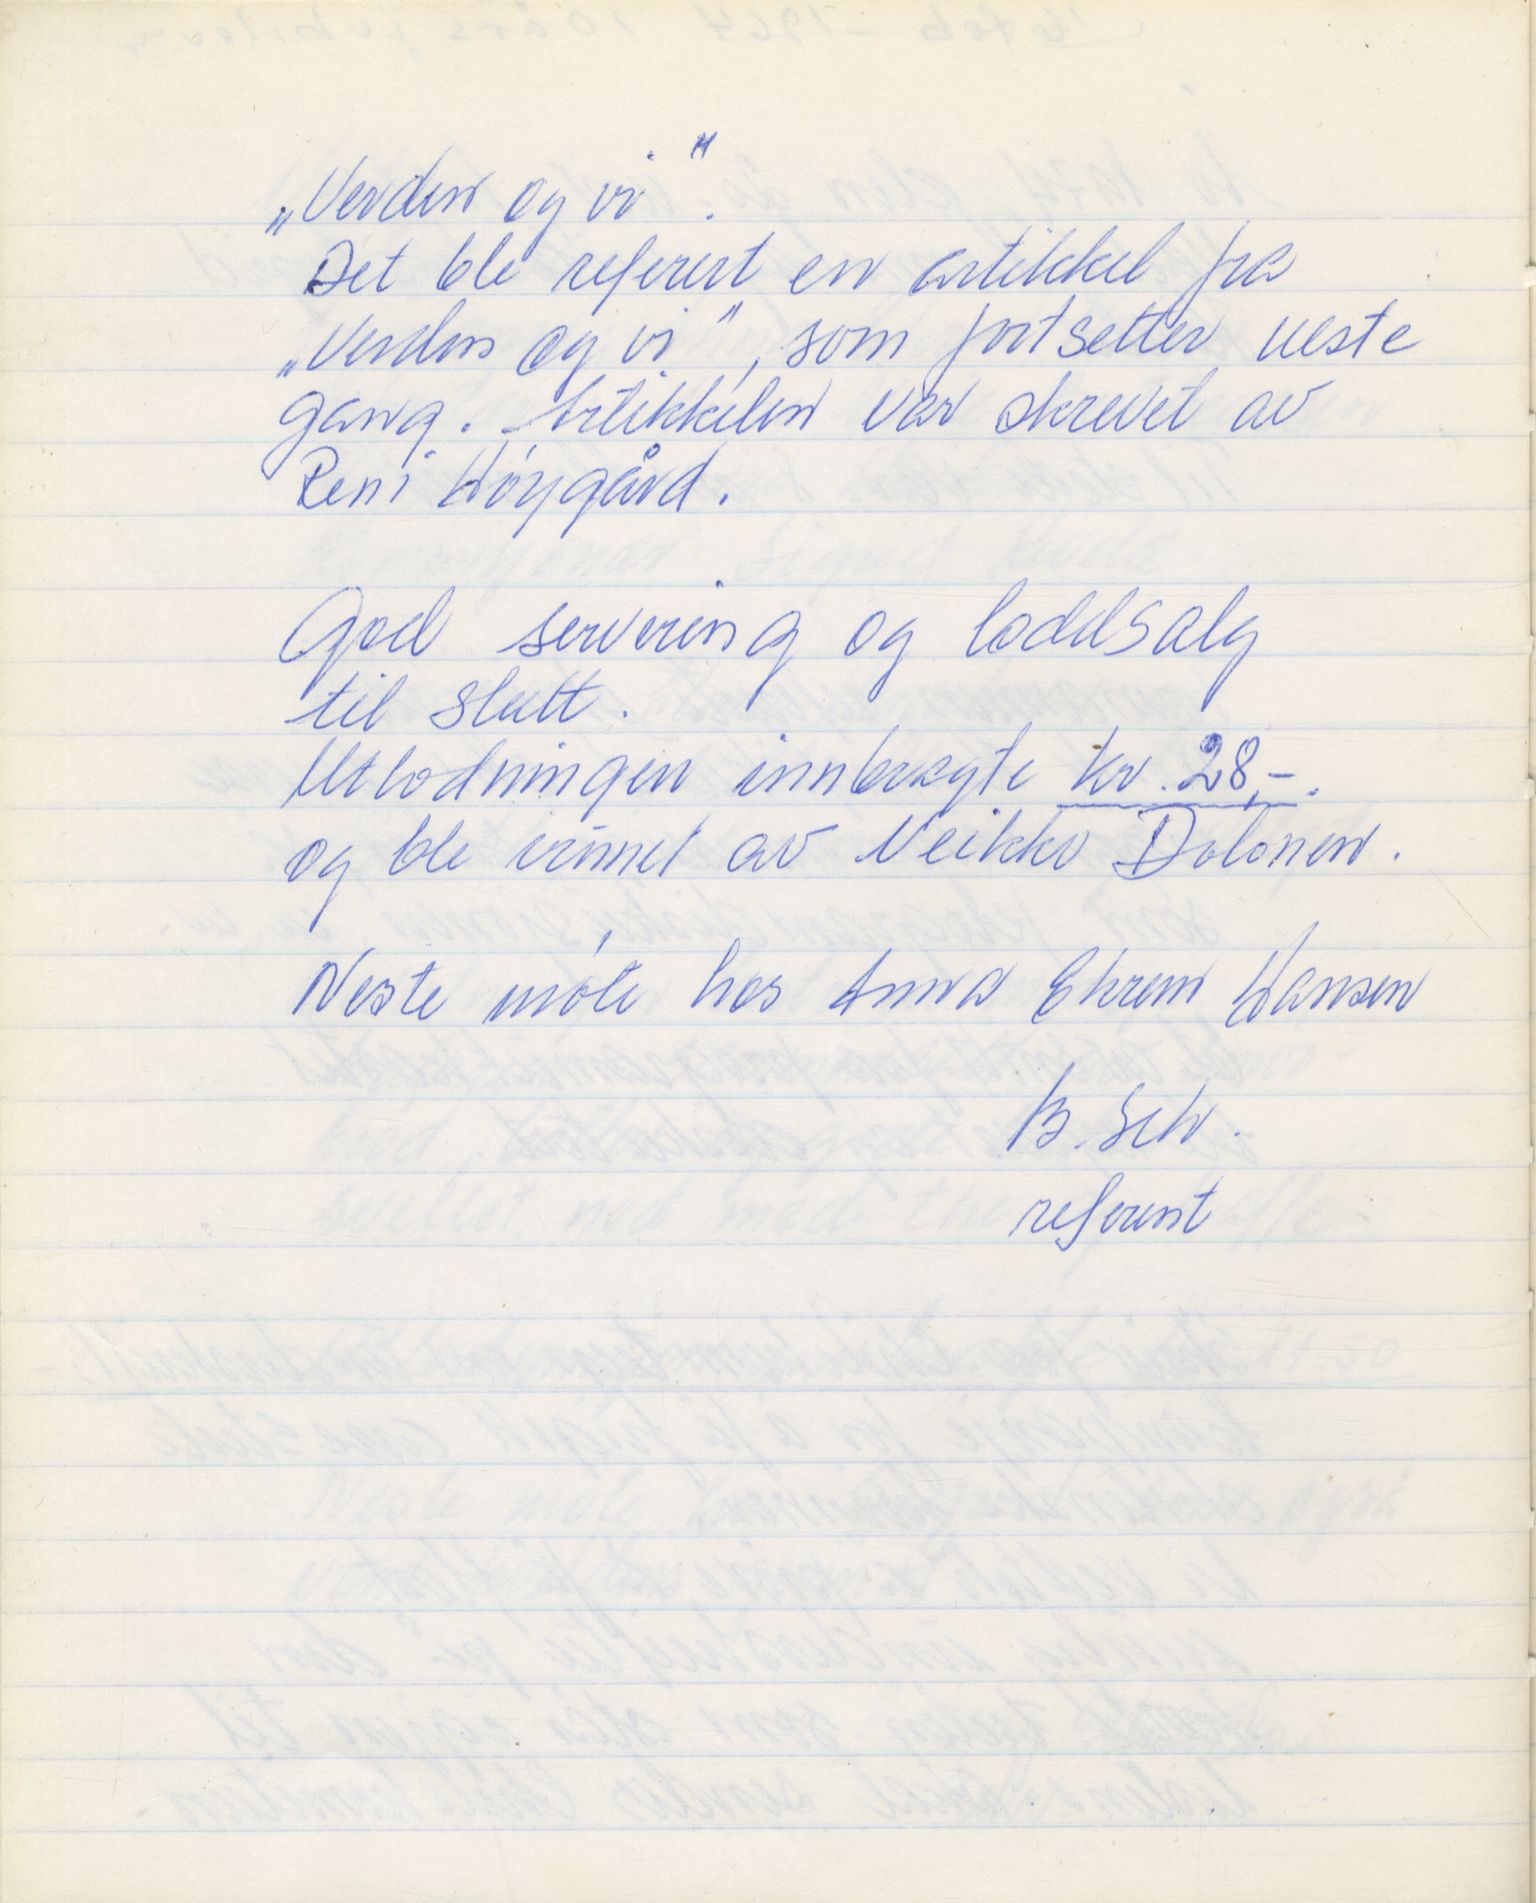 „Verden og vi".
Det ble referert en artikkel fra
„Verden og vi", som fortsetter neste
gang. Artikkelen var skrevet av
Reni Høygård.
God servering og loddsalg
til slutt.
Utlodningen innbragte kr. 28,-.
og ble vunnet av Veikko Dolonen.
Neste møte hos Anna Ekrem Hansen
B. Sch.
referent